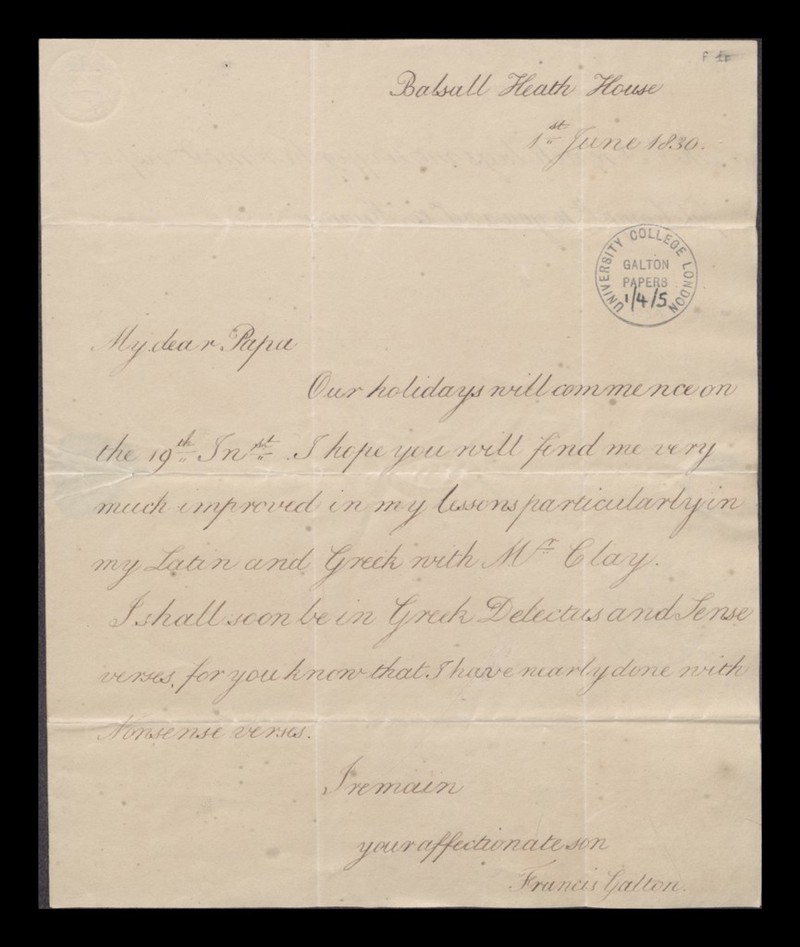 Balsall Heath House
1st June 1830.
UNIVERSITY COLLEGE LONDON
GALTON
PAPERS
1/4/5
My dear Papa
Our holidays will commence on
the 19th Inst. I hope you will find me very
much improved in my lessons particularly in
my Latin and Greek with Mr Clay.
I shall soon be in Greek Delectus and Sense
verses, for you know that I have nearly done with
Nonsense verses.
I remain
your affectionate son
Francis Galton.